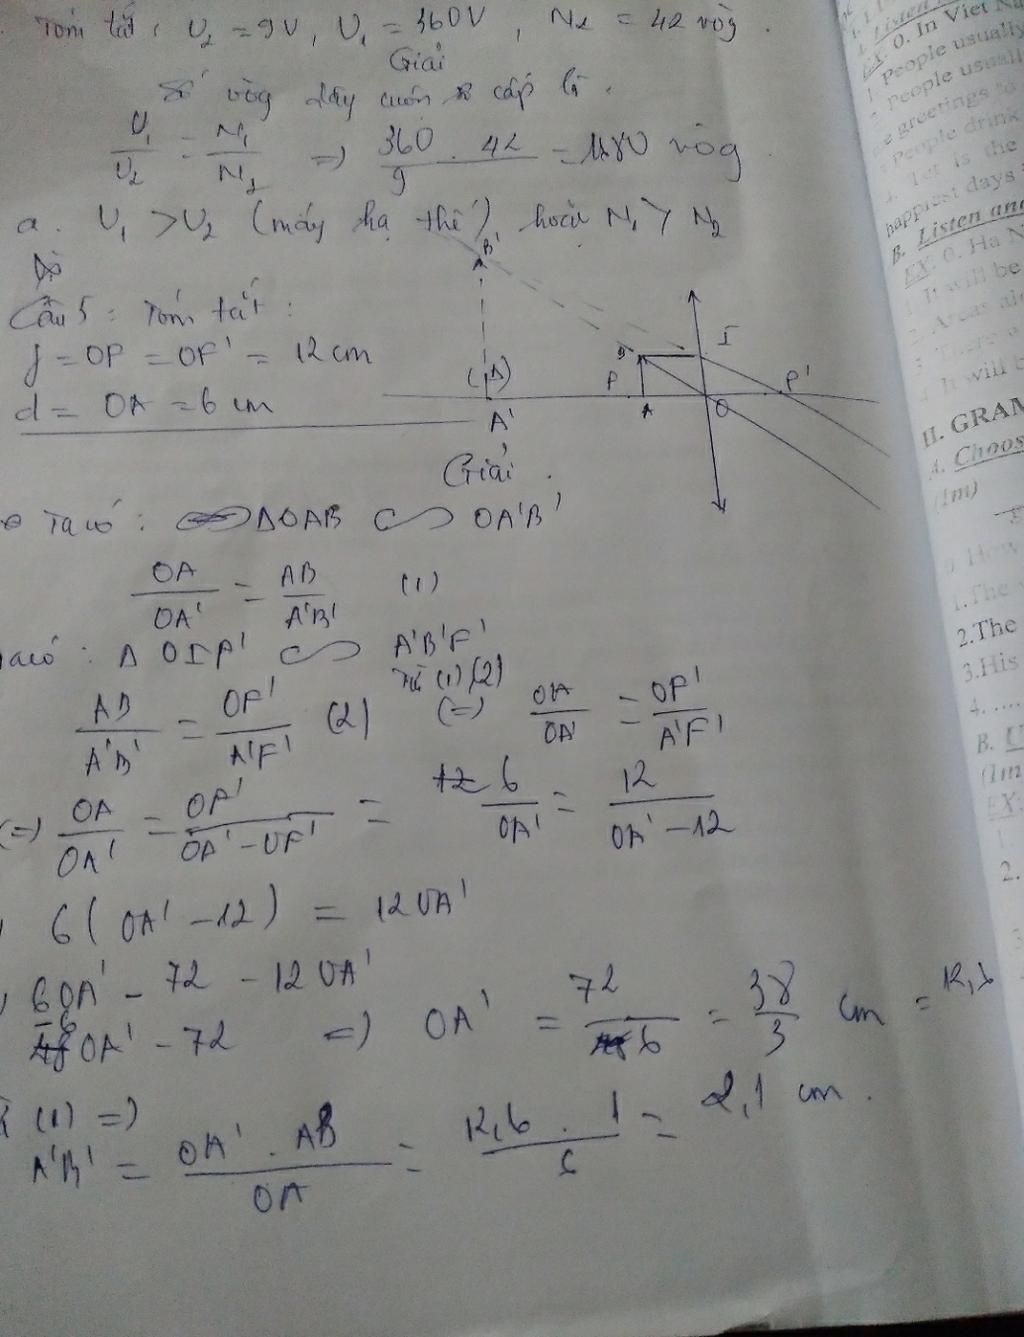 Tóm tắt: U₂ = 9V, U₁ = 360V, N₂ = 42 vòg.
Giải
Số vòg dây cuộn sơ cấp là.
U₁/U₂ = N₁/N₂ => 360 . 42 / 9 = 1680 vòg
a. U₁ > U₂ (máy hạ thế) hoặc N₁ > N₂
B'
Câu 5: Tóm tắt:
I
f = OF = OF' = 12 cm
(Δ)
B
F
F'
d = OA = 6 cm
A'
A
O
Giải.
Ta có: ΔOAB ∽ OA'B'
OA/OA' = AB/A'B' (1)
Ta có: Δ OIF' ∽ A'B'F'
Từ (1)(2)
AB/A'B' = OF'/A'F' (2) (=) OA/OA' = OF'/A'F'
(=) OA/OA' = OF'/OA' - OF' = 6/OA' = 12/OA' - 12
6(OA' - 12) = 12OA'
6OA' - 72 - 12OA'
6OA' - 72 => OA' = 72/6 = 38/3 cm =
(1) =)
A'B' = OA' . AB / OA = 12,6 . 1 / 6 = 2,1 cm.
0. In Viet Na
People usually
People usuall
e greetings to
People drink
4. Tet is the
happiest days
B. Listen and
EX: 0. Ha N
1. It will be
2. Areas alo
3. There a
4. It will b
II. GRAM
A. Choos
(1m)
0. How
1.The
2.The
3.His
4. .....
B. U
(1m
EX:
1.
2.